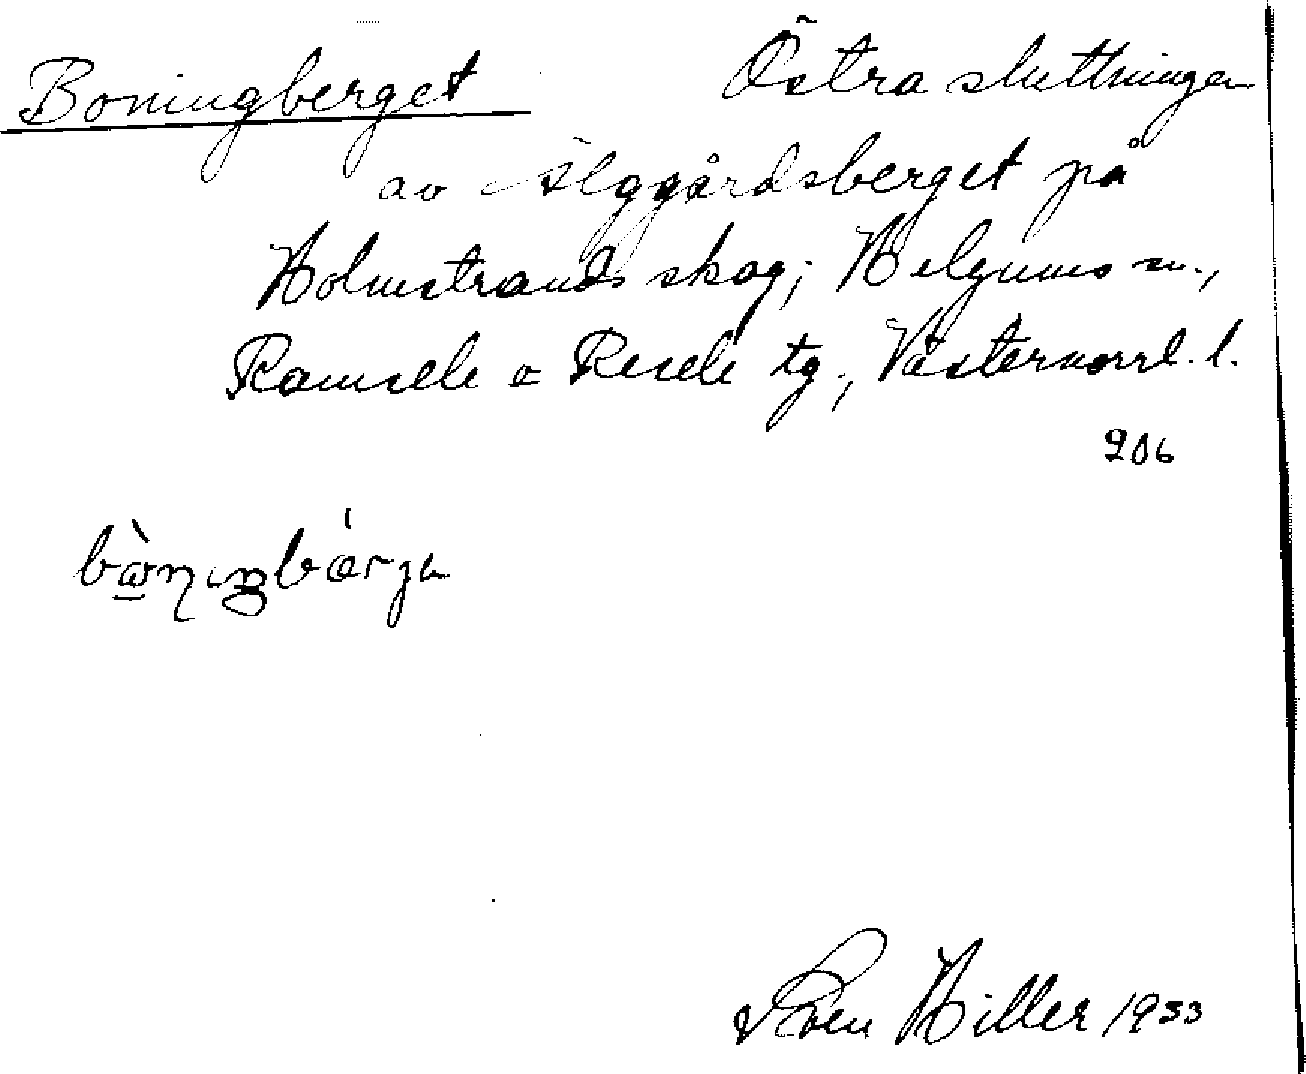 Boningberget Östra sluttningen
av Älggårdsberget på
Holmstrands skog; Helgums sn.,
Ramsele o Resele tg., Västernorrl. l.
206
Sven Hiller 1933